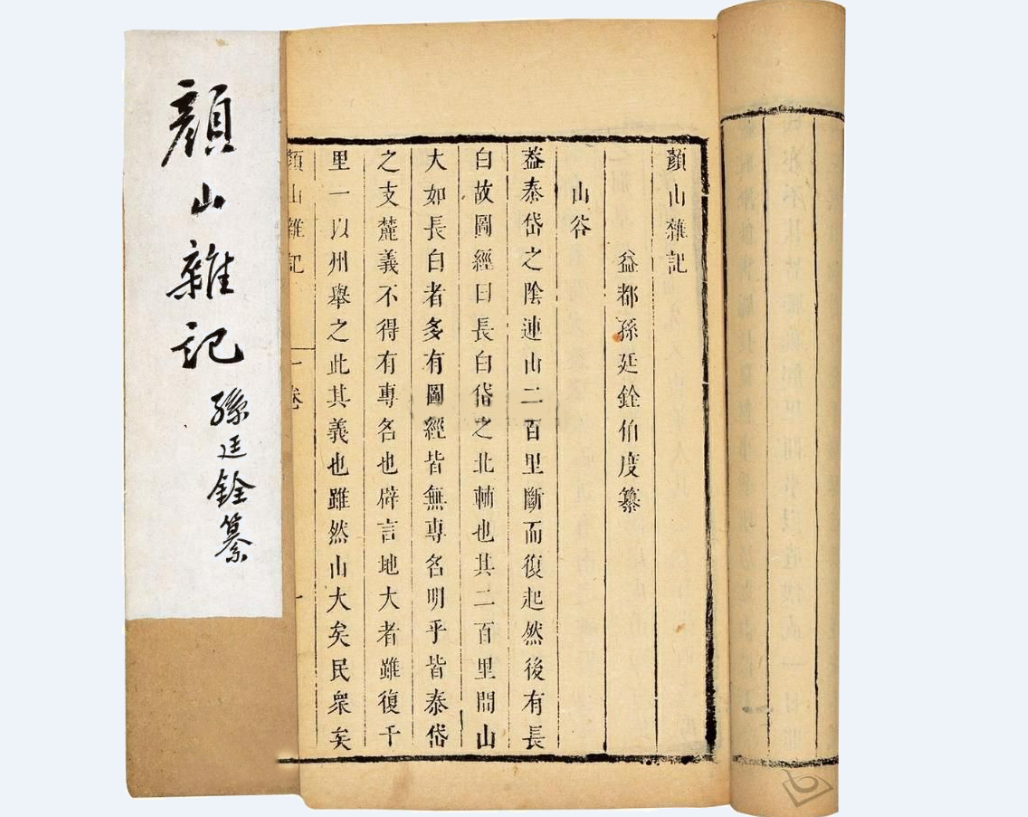 顏山雜記
益都孫廷銓伯度纂
山谷
葢泰岱之陰連山二百里斷而復起然後有長
白故圖經曰長白岱之北輔也其二百里間山
大如長白者多有圖經皆無專名明乎皆泰岱
之支麓義不得有專名也辟言地大者雖復千
里一以州舉之此其義也雖然山大矣民衆矣
顏山雜記 一卷 一
顏山雜記
孫廷銓纂